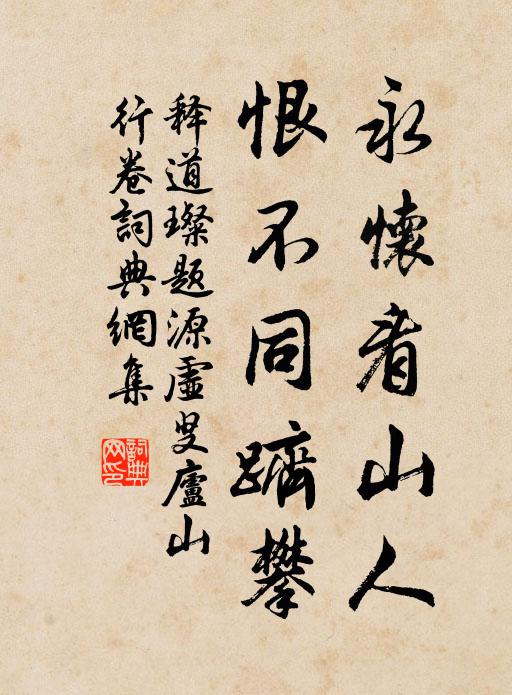 永懷看山人
恨不同躋攀
释道璨题源虛叟廬山
行卷詞典網集
詞典網印